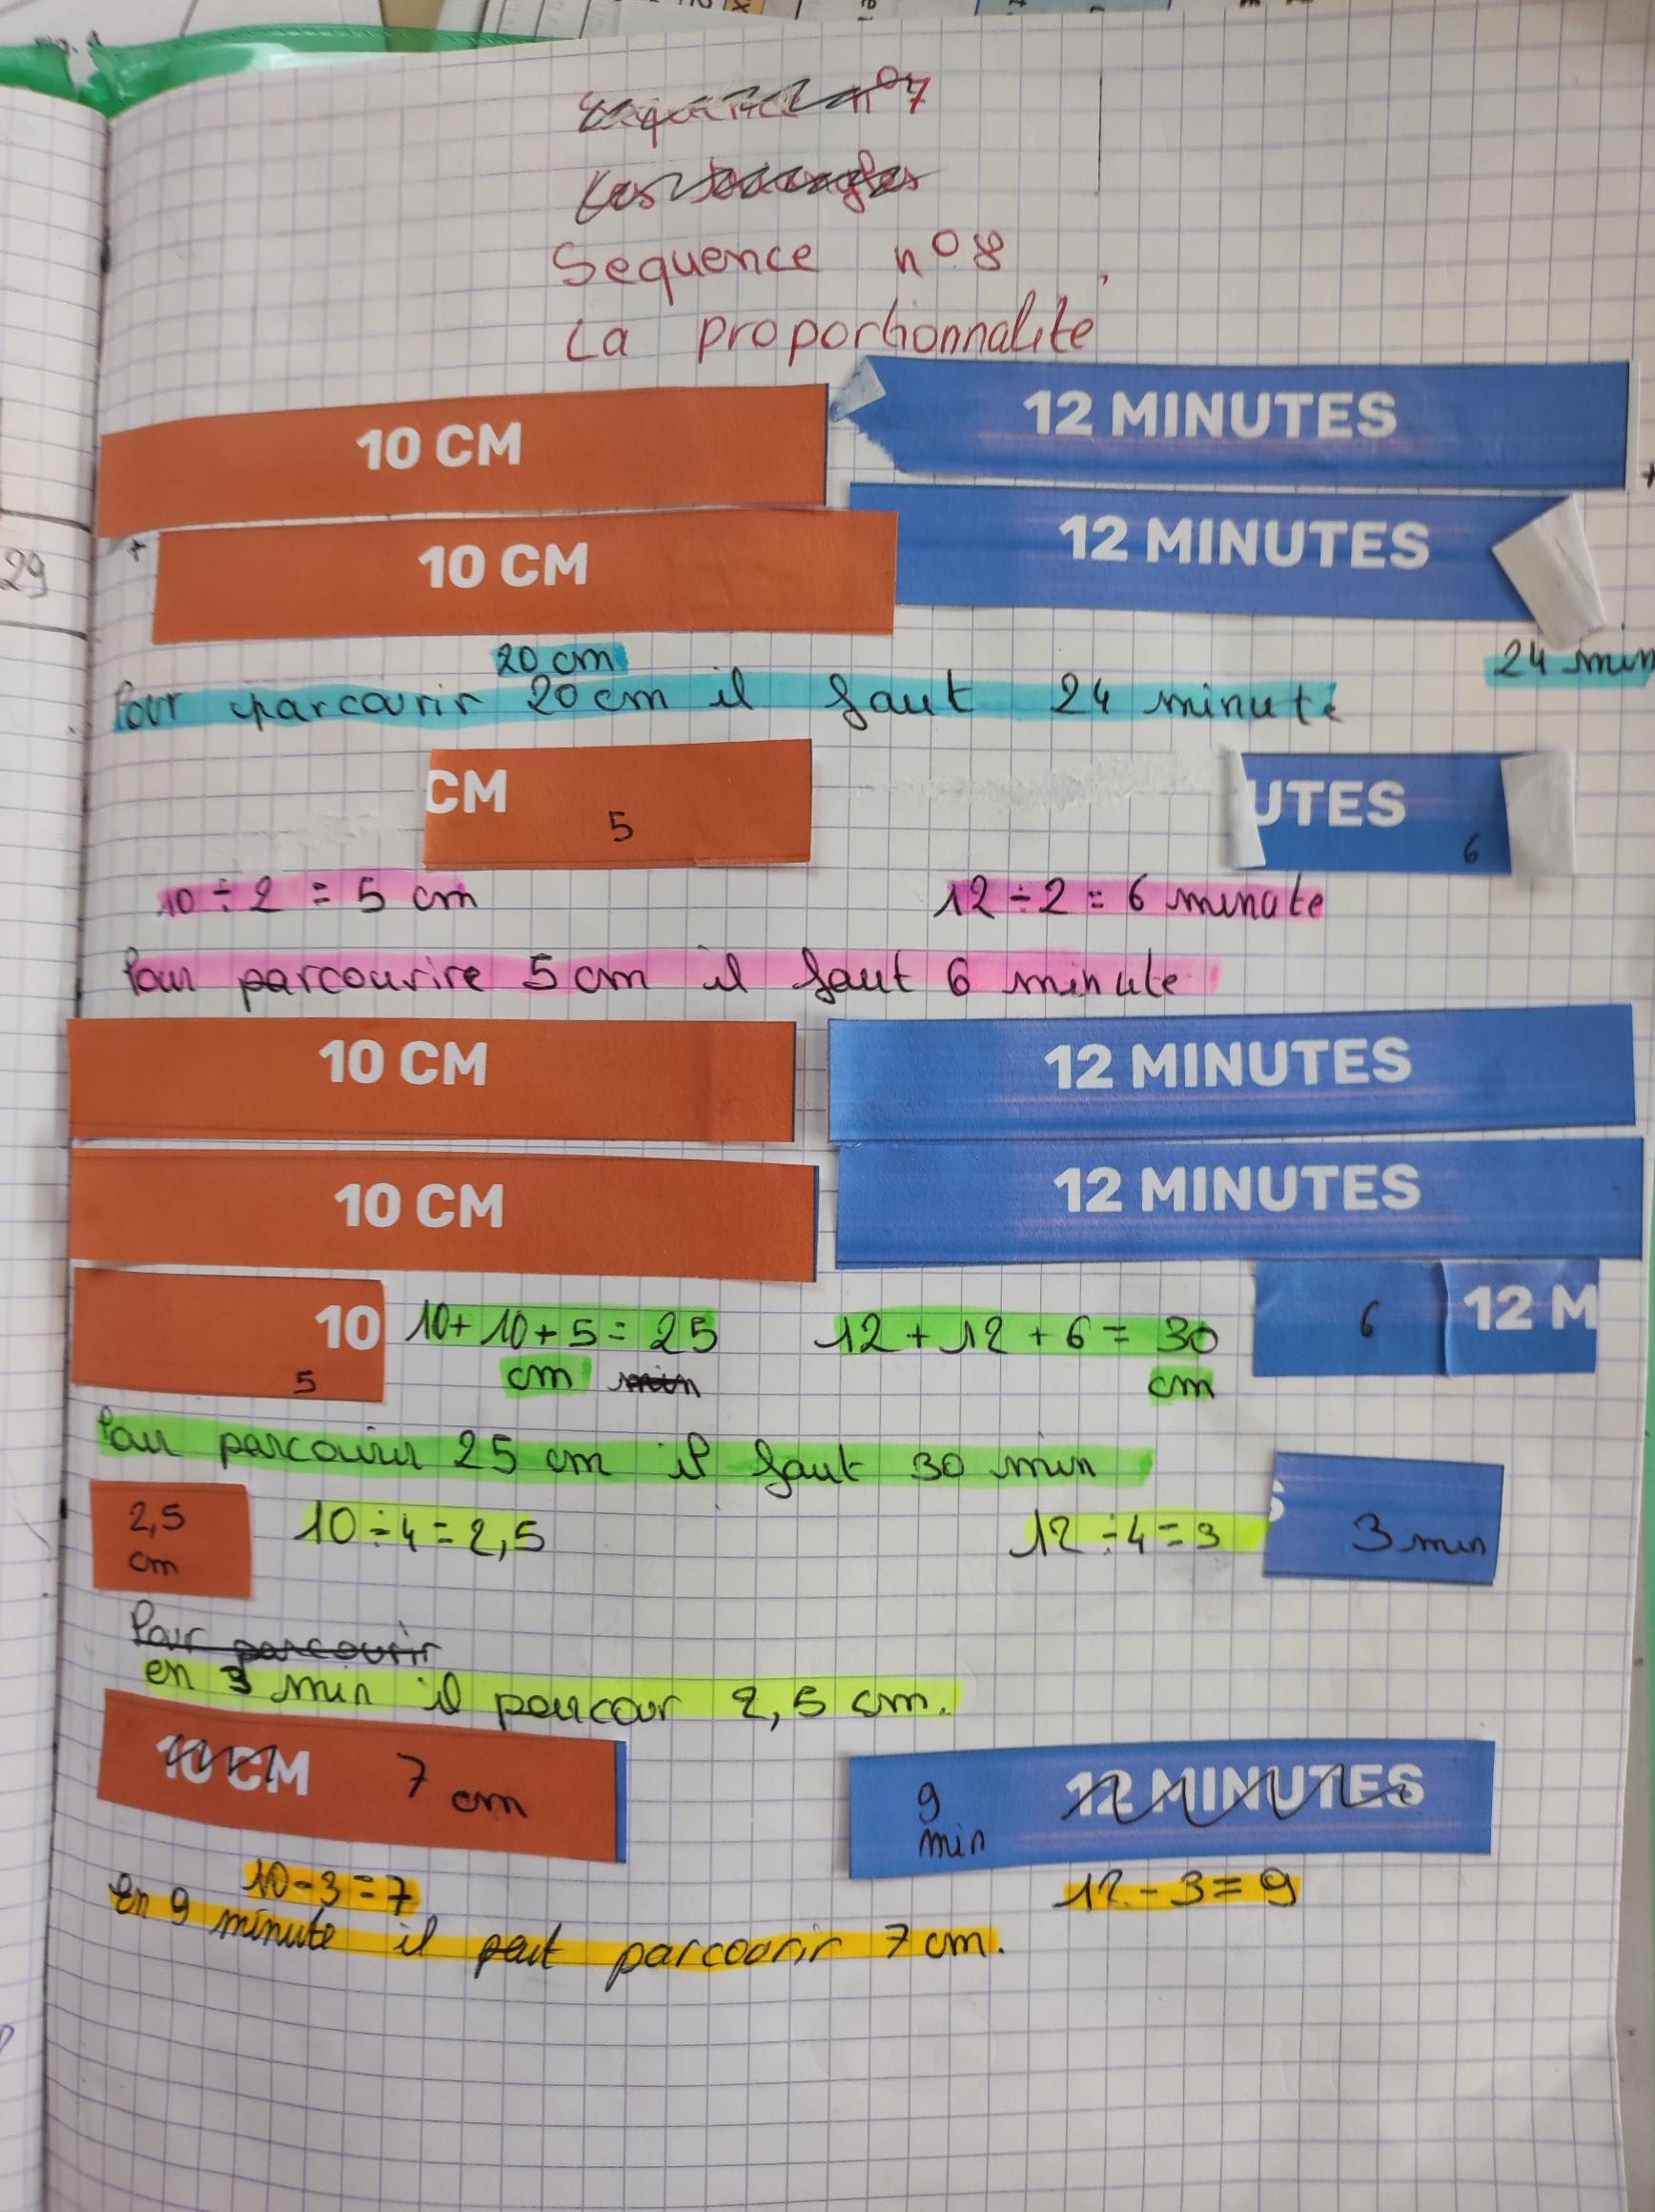 n°7
Les triangles
Sequence n°8
La proportionnalité
10 CM
12 MINUTES
+
10 CM
12 MINUTES
29
20 cm
24 min
Pour parcourir 20 cm il faut 24 minute
CM
5
UTES
6
10 ÷ 2 = 5 cm
12 ÷ 2 = 6 minute
Pour parcourire 5 cm il faut 6 minute
10 CM
12 MINUTES
10 CM
12 MINUTES
10
5
10 + 10 + 5 = 25
cm min
12 + 12 + 6 = 30
cm
6
12 M
Pour parcourir 25 cm il faut 30 min
2,5
cm
10 ÷ 4 = 2,5
12 ÷ 4 = 3
S
3 min
Pour parcourir
en 3 min il parcour 2,5 cm.
10 CM 7 cm
9
min
12 MINUTES
10 - 3 = 7
12 - 3 = 9
En 9 minute il peut parcourir 7 cm.